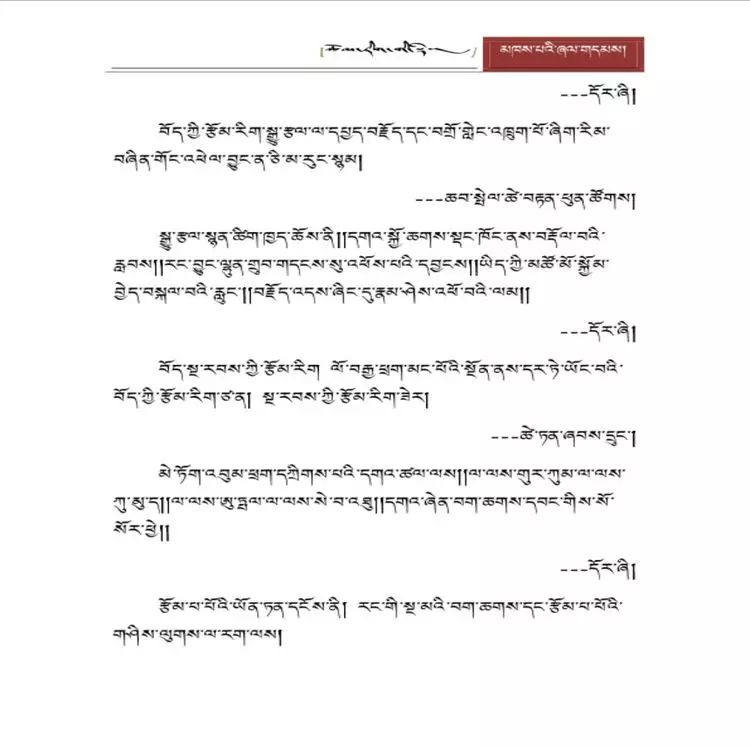 མཁས་པའི་ཞལ་གདམས།
---དོར་ཞི།
བོད་ཀྱི་རྩོམ་རིག་སྒྱུ་རྩལ་ལ་དཔྱད་བརྗོད་དང་བགྲོ་གླེང་འཁྲུག་པོ་ཞིག་རིམ་
བཞིན་གོང་འཕེལ་བྱུང་ན་ཅི་མ་རུང་སྙམ།
---ཆབ་སྤེལ་ཚེ་བརྟན་ཕུན་ཚོགས།
སྒྱུ་རྩལ་སྙན་ཚིག་ཁྱད་ཆོས་ནི།།དགའ་སྐྱོ་ཆགས་སྡང་ཁོང་ནས་བརྡོལ་བའི་
རླབས།།རང་བྱུང་ལྷུན་གྲུབ་གདངས་སུ་འཕོས་པའི་དབྱངས།།ཡིད་ཀྱི་མཚོ་མོ་སྐྱོམ་
བྱེད་བསྐལ་བའི་རླུང་།།བརྗོད་འདས་ཞིང་དུ་རྣམ་ཤེས་འཕོ་བའི་ལམ།།
---དོར་ཞི།
བོད་སྔ་རབས་ཀྱི་རྩོམ་རིག ལོ་བརྒྱ་ཕྲག་མང་པོའི་སྔོན་ནས་དར་ཏེ་ཡོང་བའི་
བོད་ཀྱི་རྩོམ་རིག་ཙན། སྔ་རབས་ཀྱི་རྩོམ་རིག་ཟེར།
---ཚེ་ཏན་ཞབས་དྲུང་།
མེ་ཏོག་འབུམ་ཕྲག་དཀྲིགས་པའི་དགའ་ཚལ་ལས།།ལ་ལས་གུར་ཀུམ་ལ་ལས་
ཀུ་མུ་ད།།ལ་ལས་ཨུ་ཏྤལ་ལ་ལས་སེ་བ་འཐུ།།དགའ་ཞེན་བག་ཆགས་དབང་གིས་སོ་
སོར་ཕྱེ།།
---དོར་ཞི།
རྩོམ་པ་པོའི་ཡོན་ཏན་དངོས་ནི། རང་གི་སྔ་མའི་བག་ཆགས་དང་རྩོམ་པ་པོའི་
གཤིས་ལུགས་ལ་རག་ལས།